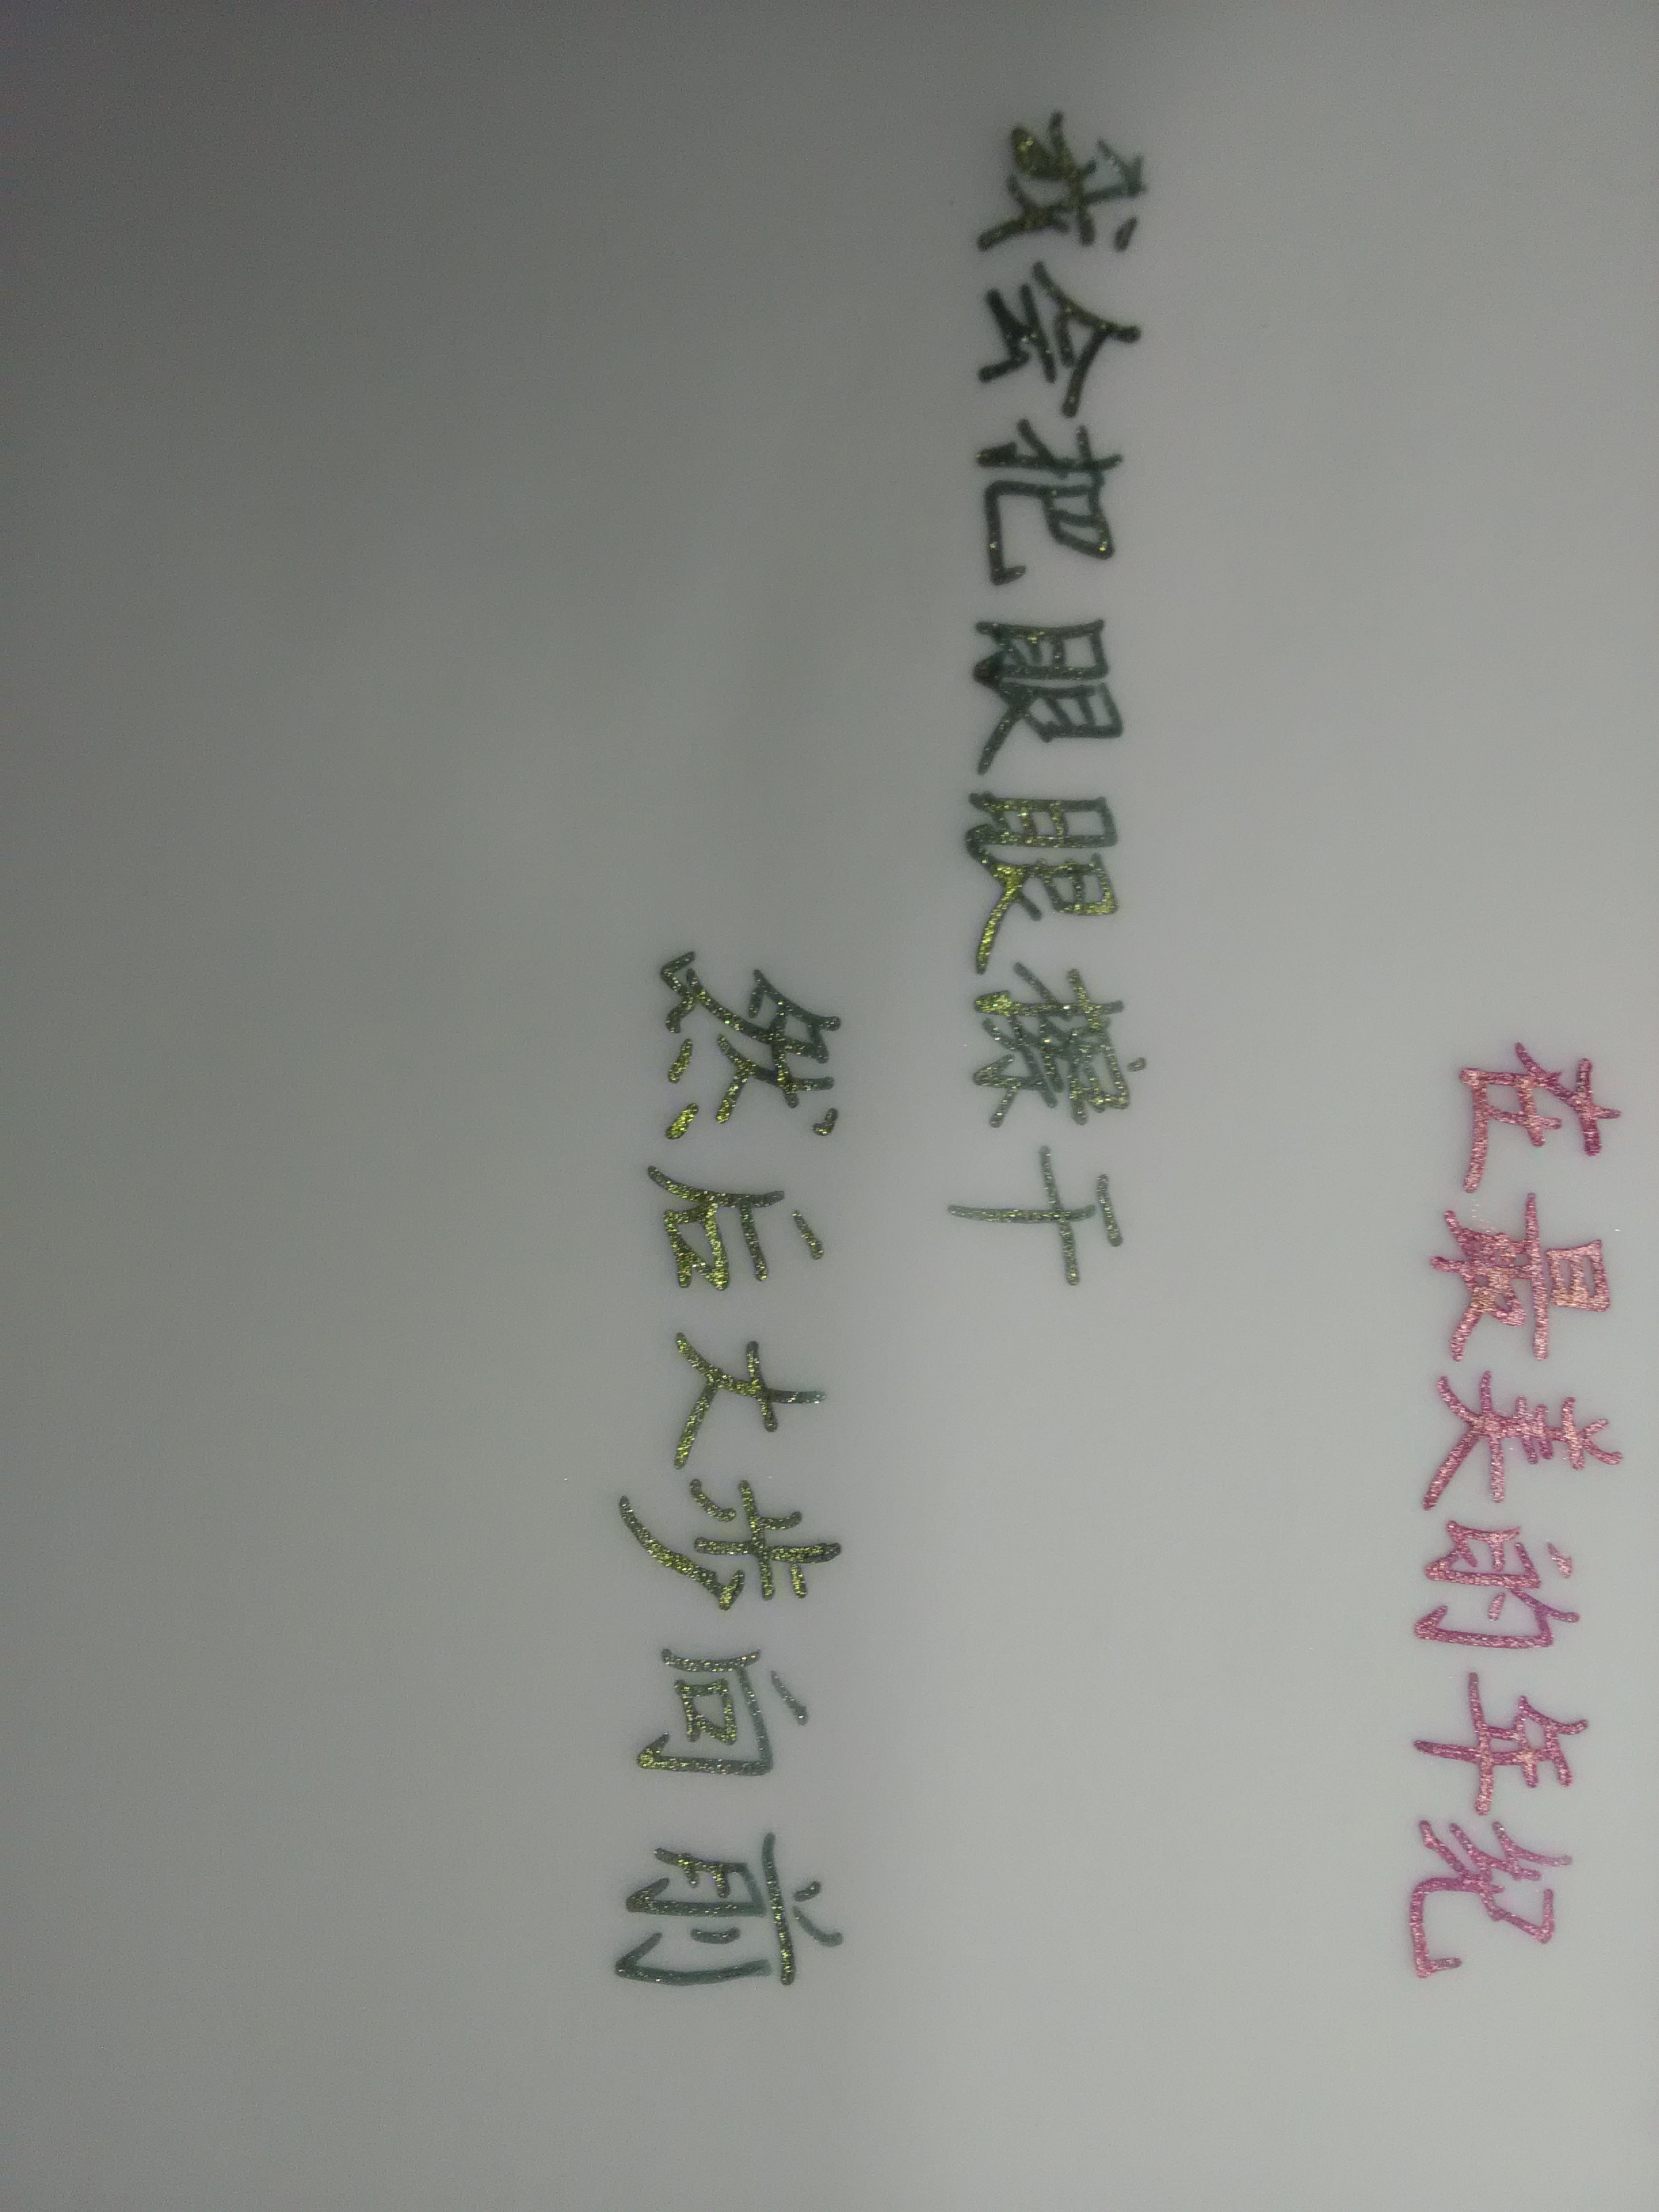 在最美的年纪
我会把眼眼擦干
然后大步向前